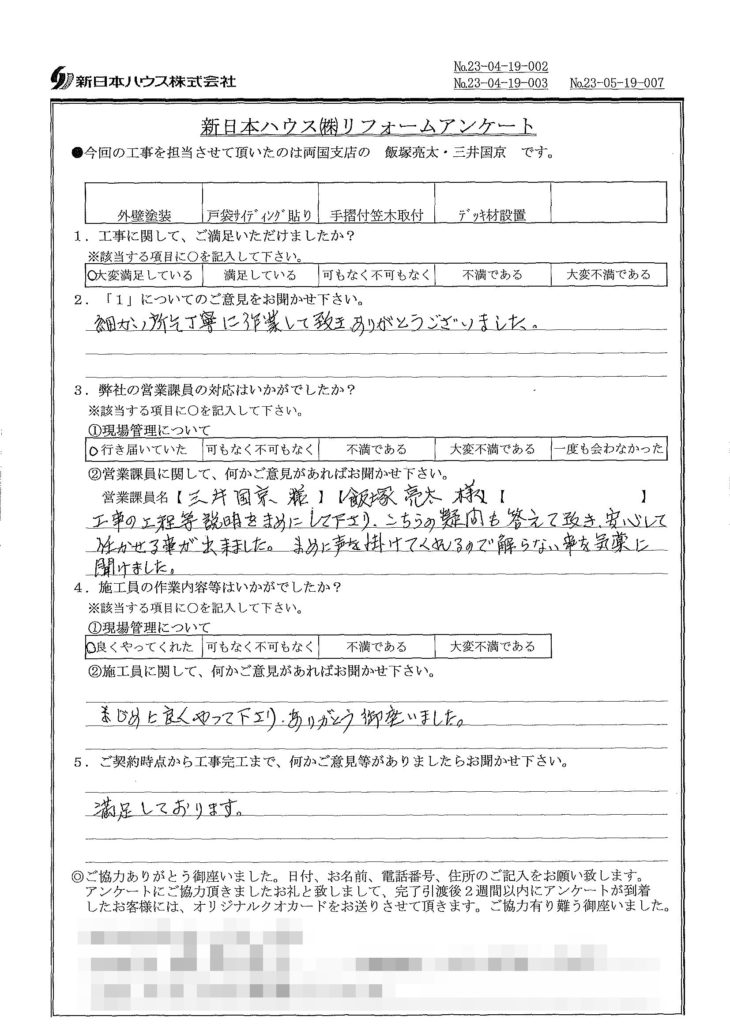 新日本ハウス株式会社
No.23-04-19-002
No.23-04-19-003 No.23-05-19-007
新日本ハウス㈱リフォームアンケート
●今回の工事を担当させて頂いたのは両国支店の 飯塚亮太・三井国京 です。
外壁塗装 戸袋ｻｲﾃﾞｨﾝｸﾞ貼り 手摺付笠木取付 ﾃﾞｯｷ材設置
１．工事に関して、ご満足いただけましたか？
※該当する項目に○を記入して下さい。
○大変満足している 満足している 可もなく不可もなく 不満である 大変不満である
２．「１」についてのご意見をお聞かせ下さい。
細かい所も丁寧に作業して致き ありがとうございました。
３．弊社の営業課員の対応はいかがでしたか？
※該当する項目に○を記入して下さい。
①現場管理について
○行き届いていた 可もなく不可もなく 不満である 大変不満である 一度も会わなかった
②営業課員に関して、何かご意見があればお聞かせ下さい。
営業課員名【三井国京 様】【飯塚亮太 様】【 】
工事の工程等説明をまめにして下さり、こちらの疑問も答えて致き、安心して
任かせる事が出来ました。まめに声を掛けてくれるので解らない事を気楽に
聞けました。
４．施工員の作業内容等はいかがでしたか？
※該当する項目に○を記入して下さい。
①現場管理について
○良くやってくれた 可もなく不可もなく 不満である 大変不満である
②施工員に関して、何かご意見があればお聞かせ下さい。
まじめに良くやって下さり、ありがとう御座いました。
５．ご契約時点から工事完工まで、何かご意見等がありましたらお聞かせ下さい。
満足しております。
◎ご協力ありがとう御座いました。日付、お名前、電話番号、住所のご記入をお願い致します。
アンケートにご協力頂きましたお礼と致しまして、完了引渡後２週間以内にアンケートが到着
したお客様には、オリジナルクオカードをお送りさせて頂きます。ご協力有り難う御座いました。